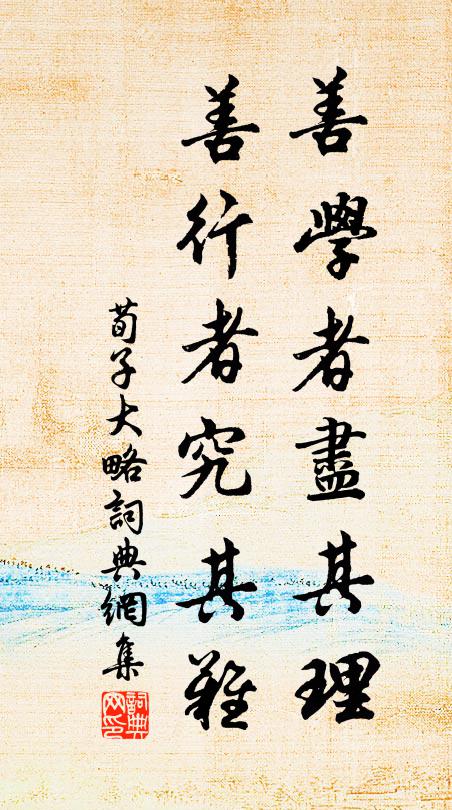 善學者盡其理
善行者究其難
荀子大略詞典網集
詞典网印